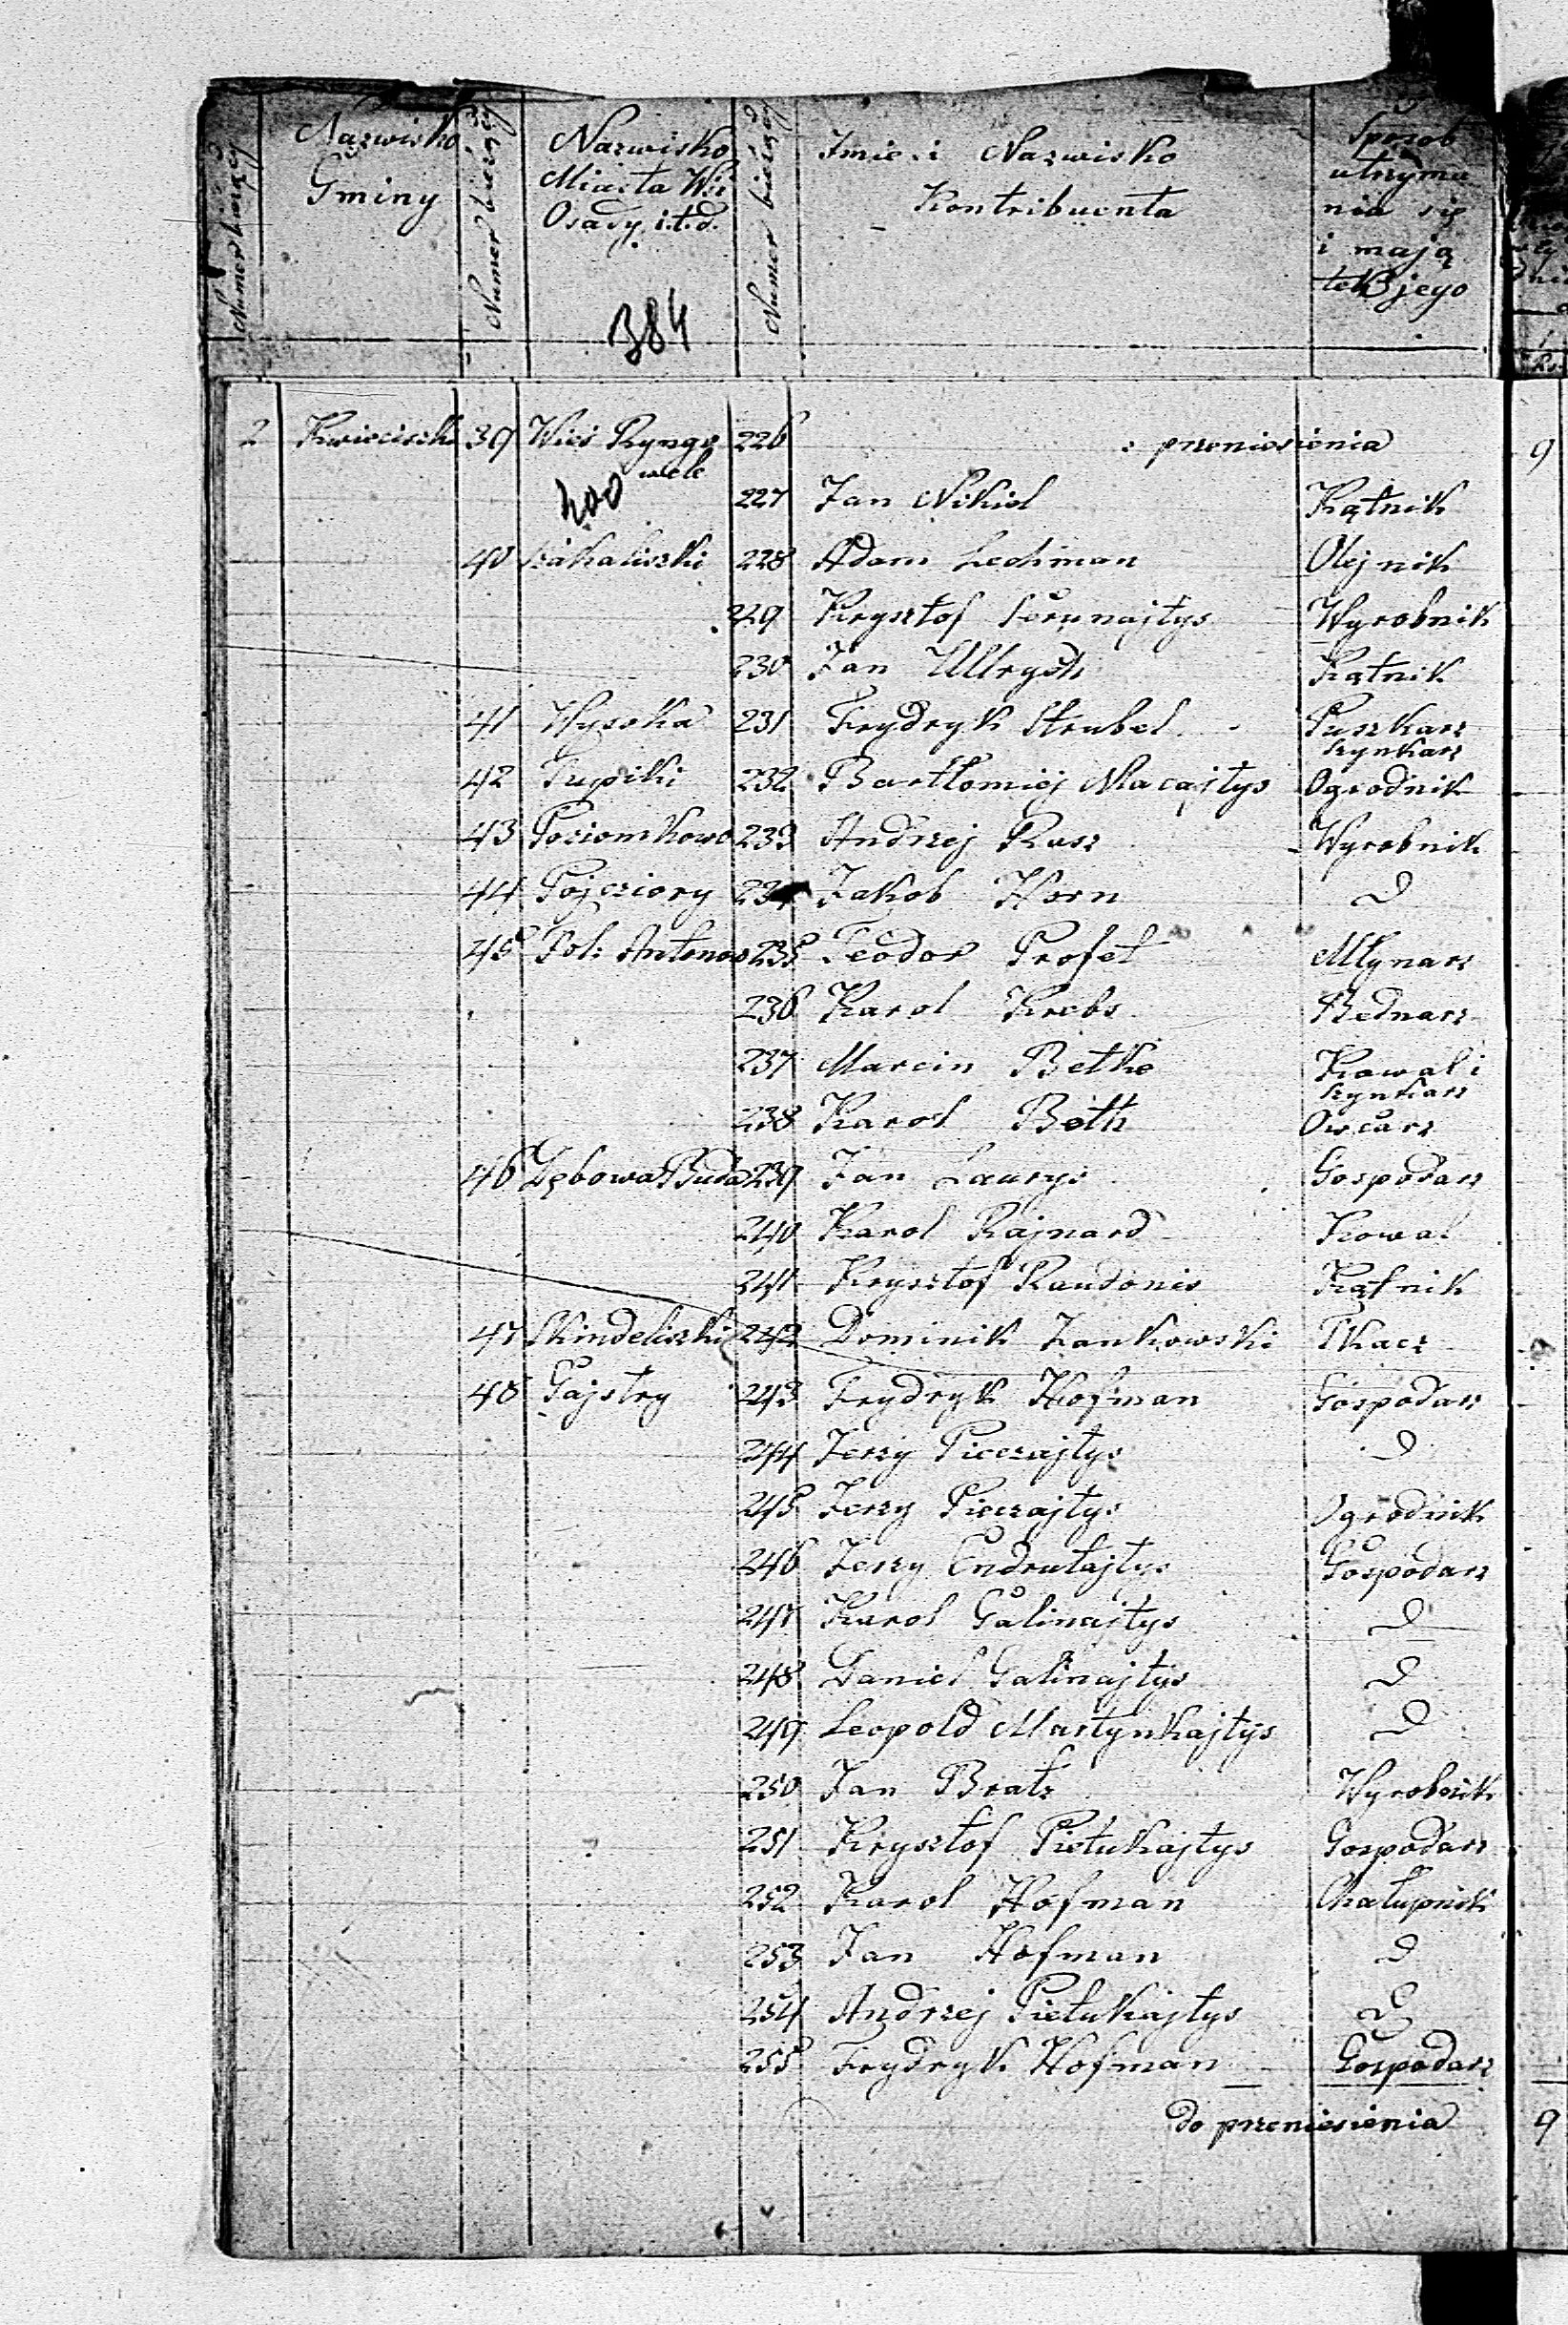 Numer bieżący
Nazwisko Gminy
Numer bieżący
Nazwisko Miasta Wsi Osady i.t.d.
Numer bieżący
Imie i Nazwisko Kontribuenta
Sposob utrzymania się i mają tek jego
384
2 Kwieciszki 39 Wieś Ryngo 226 z przeniesienia 9
wele
400 227 Jan Nikiel Kątnik
40 228 Adam Lechman Olejnik
229 Krysztof Wyrobnik
230 Jan Ullrych Kątnik
41 Wysoka 231 Frydryk Strubel Puszkarz
Szynkarz
42 Trypiki 232 Bartłomiej Macajtys Ogrodnik
43 Poziomkowo 233 Andrzej Rasz Wyrobnik
44 Pojeziory 234 Jakob Horn D
45 Fol: Antonow 235 Teodor Profet Młynarz
236 Karol Krebs Bednarz
237 Marcin Betke Kowal i
Szynkarz
238 Karol Both Owcarz
46 Dębowa Buda 239 Jan Laurys Gospodarz
240 Karol Rajnard Kowal
241 Krysztof Raudonis Kątnik
47 Skindeliszki 242 Dominik Jankowski Tkacz
48 Gajstry 243 Frydryk Hofman Gospodarz
244 Jerzy Piczajtys D
245 Jerzy Piczajtys Ogrodnik
246 Jerzy Endrutajtys Gospodarz
247 Karol Galinajtys D
248 Daniel Galinajtys D
249 Leopold Martynkajtys D
250 Jan Bratz Wyrobnik
251 Krysztof Pietukajtys Gospodarz
252 Karol Hofman Chałupnik
253 Jan Hofman D
254 Andrzej Pietukajtys D
255 Frydryk Hofman Gospodarz
do przeniesienia 9